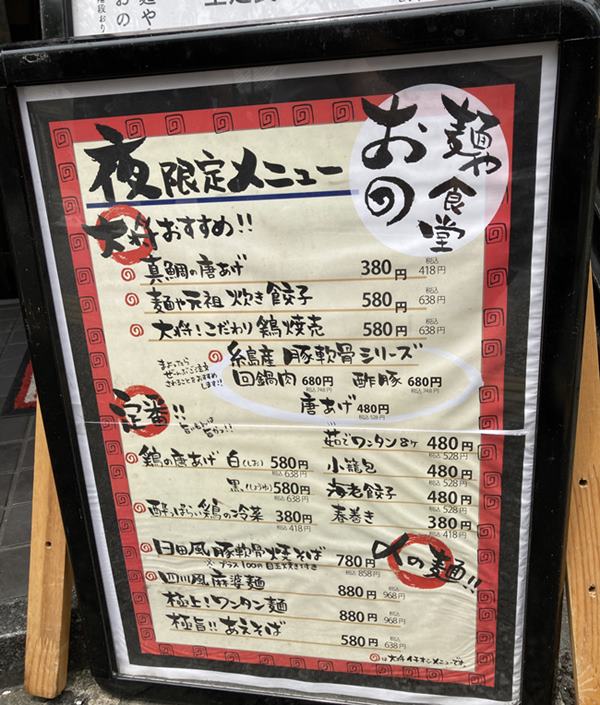 麺や食堂
おの
夜限定メニュー
大将おすすめ!!
真鯛の唐あげ 380円 税込418円
麺や元祖炊き餃子 580円 税込638円
大将!こだわり鶏焼売 580円 税込638円
糸島産 豚軟骨シリーズ
まよったら
ぜ〜んぶご注文
されることをおすすめ
します!!
回鍋肉 680円 税込748円 酢豚 680円 税込748円
唐あげ 480円 税込528円
定番!!
旨いもんは
旨かっ!!
鶏の唐あげ 白(しお) 580円 税込638円
黒(しょうゆ) 580円 税込638円
酔っぱらい鶏の冷菜 380円 税込418円
茹でワンタン8ケ 480円 税込528円
小籠包 480円 税込528円
海老餃子 480円 税込528円
春巻き 380円 税込418円
〆の麺!!
日田風豚軟骨焼そば 780円 税込858円
※プラス100円 目玉焼き付き
四川風麻婆麺 880円 税込968円
極上!ワンタン麺 880円 税込968円
極旨!!あえそば 580円 税込638円
は大将イチオシメニューです。